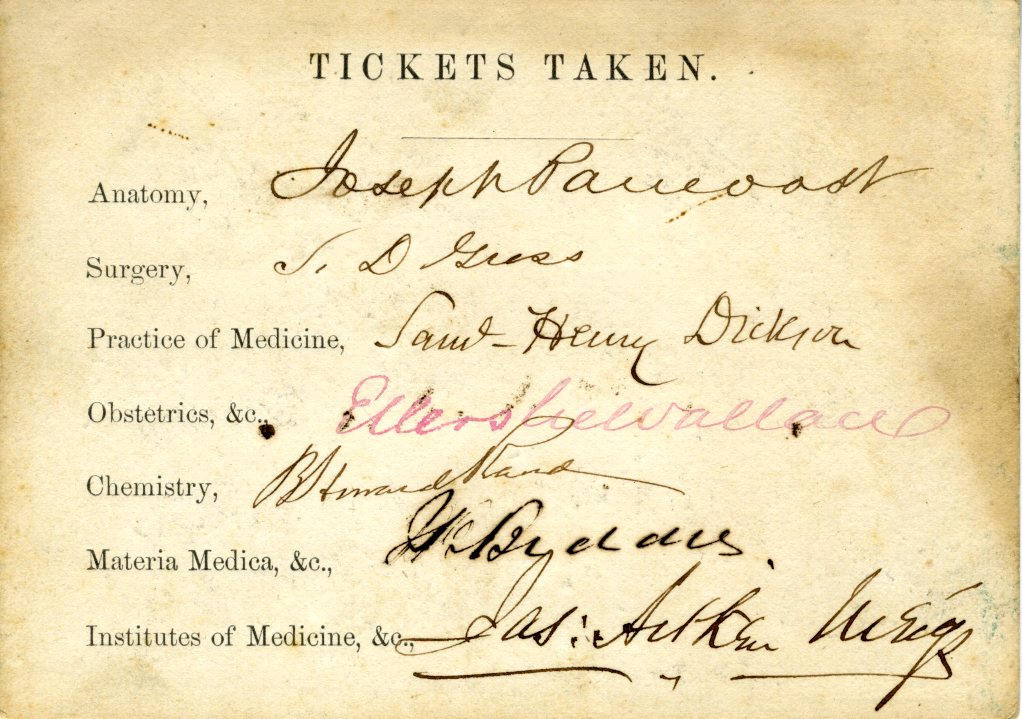 TICKETS TAKEN.
Anatomy, Joseph Pancoast
Surgery, S. D Gross
Practice of Medicine, Saml Henry Dickson
Obstetrics, &c., Ellerslie Wallace
Chemistry, B Howard Rand
Materia Medica, &c.,
Institutes of Medicine, &c., Jas: Aitken Meigs